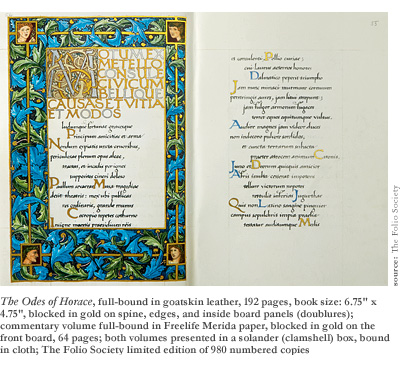 MOTUM EX
METELLO
CONSULE
CIVICUM
BELLIQUE
CAUSAS ET VITIA
ET MODOS
ludumque Fortunae gravisque
Principum amicitias et arma
Nondum expiatis uncta cruoribus,
periculosae plenum opus aleae,
tractas, et incedis per ignes
suppositos cineri doloso
Paullum severae Musa tragediae
desit theatris: mox ubi publicas
res ordinaris, grande munus
Cecropio repetes cothurno
Insigne maestis praesidium reis
15
et consulenti Pollio curiae;
cui laurus aeternos honores
Dalmatico peperit triumpho
Jam nunc minaci murmure cornuum
perstringis aures, jam litui strepunt;
jam fulgor armorum fugaces
terret equos equitumque vultus.
Audire magnos jam videor duces
non indecoro pulvere sordidos,
et cuncta terrarum subacta
praeter atrocem animum Catonis.
Juno et Deorum quisquis amicior
Afris inulta cesserat impotens
tellure victorum nepotes
rettulit inferias Jugurthae
Quis non Latino sanguine pinguior
campus sepulchris impia proelia
testatur auditumque Medis
source: The Folio Society
The Odes of Horace, full-bound in goatskin leather, 192 pages, book size: 6.75" x
4.75", blocked in gold on spine, edges, and inside board panels (doublures);
commentary volume full-bound in Freelife Merida paper, blocked in gold on the
front board, 64 pages; both volumes presented in a solander (clamshell) box, bound
in cloth; The Folio Society limited edition of 980 numbered copies